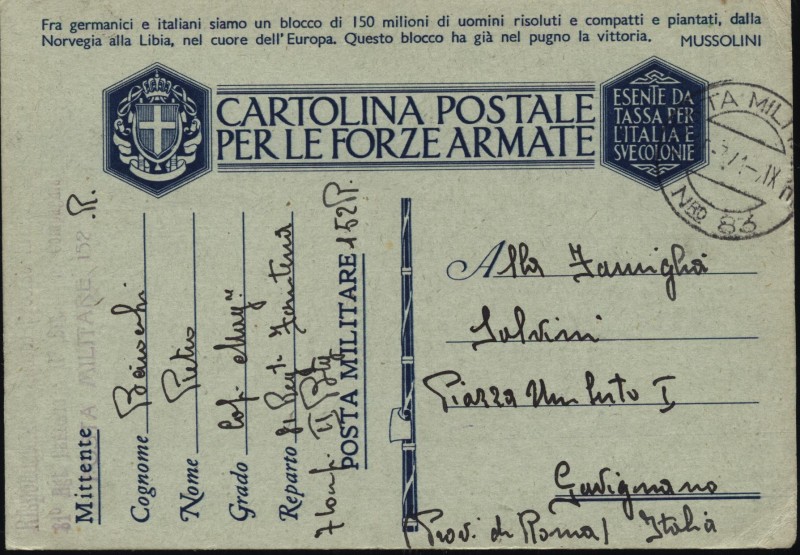 Fra germanici e italiani siamo un blocco di 150 milioni di uomini risoluti e compatti e piantati, dalla
Norvegia alla Libia, nel cuore dell'Europa. Questo blocco ha già nel pugno la vittoria. MUSSOLINI
CARTOLINA POSTALE
PER LE FORZE ARMATE
ESENTE DA
TASSA PER
L'ITALIA E
SVE COLONIE
TA MILI
NRO 83
Mittente
Cognome
Nome Pietro
Grado
Reparto
POSTA MILITARE 152 R.
MILITARE 152 R.
Alla Famiglia
Salvini
Piazza Umberto I
Gavignano
(Prov. di Roma) Italia